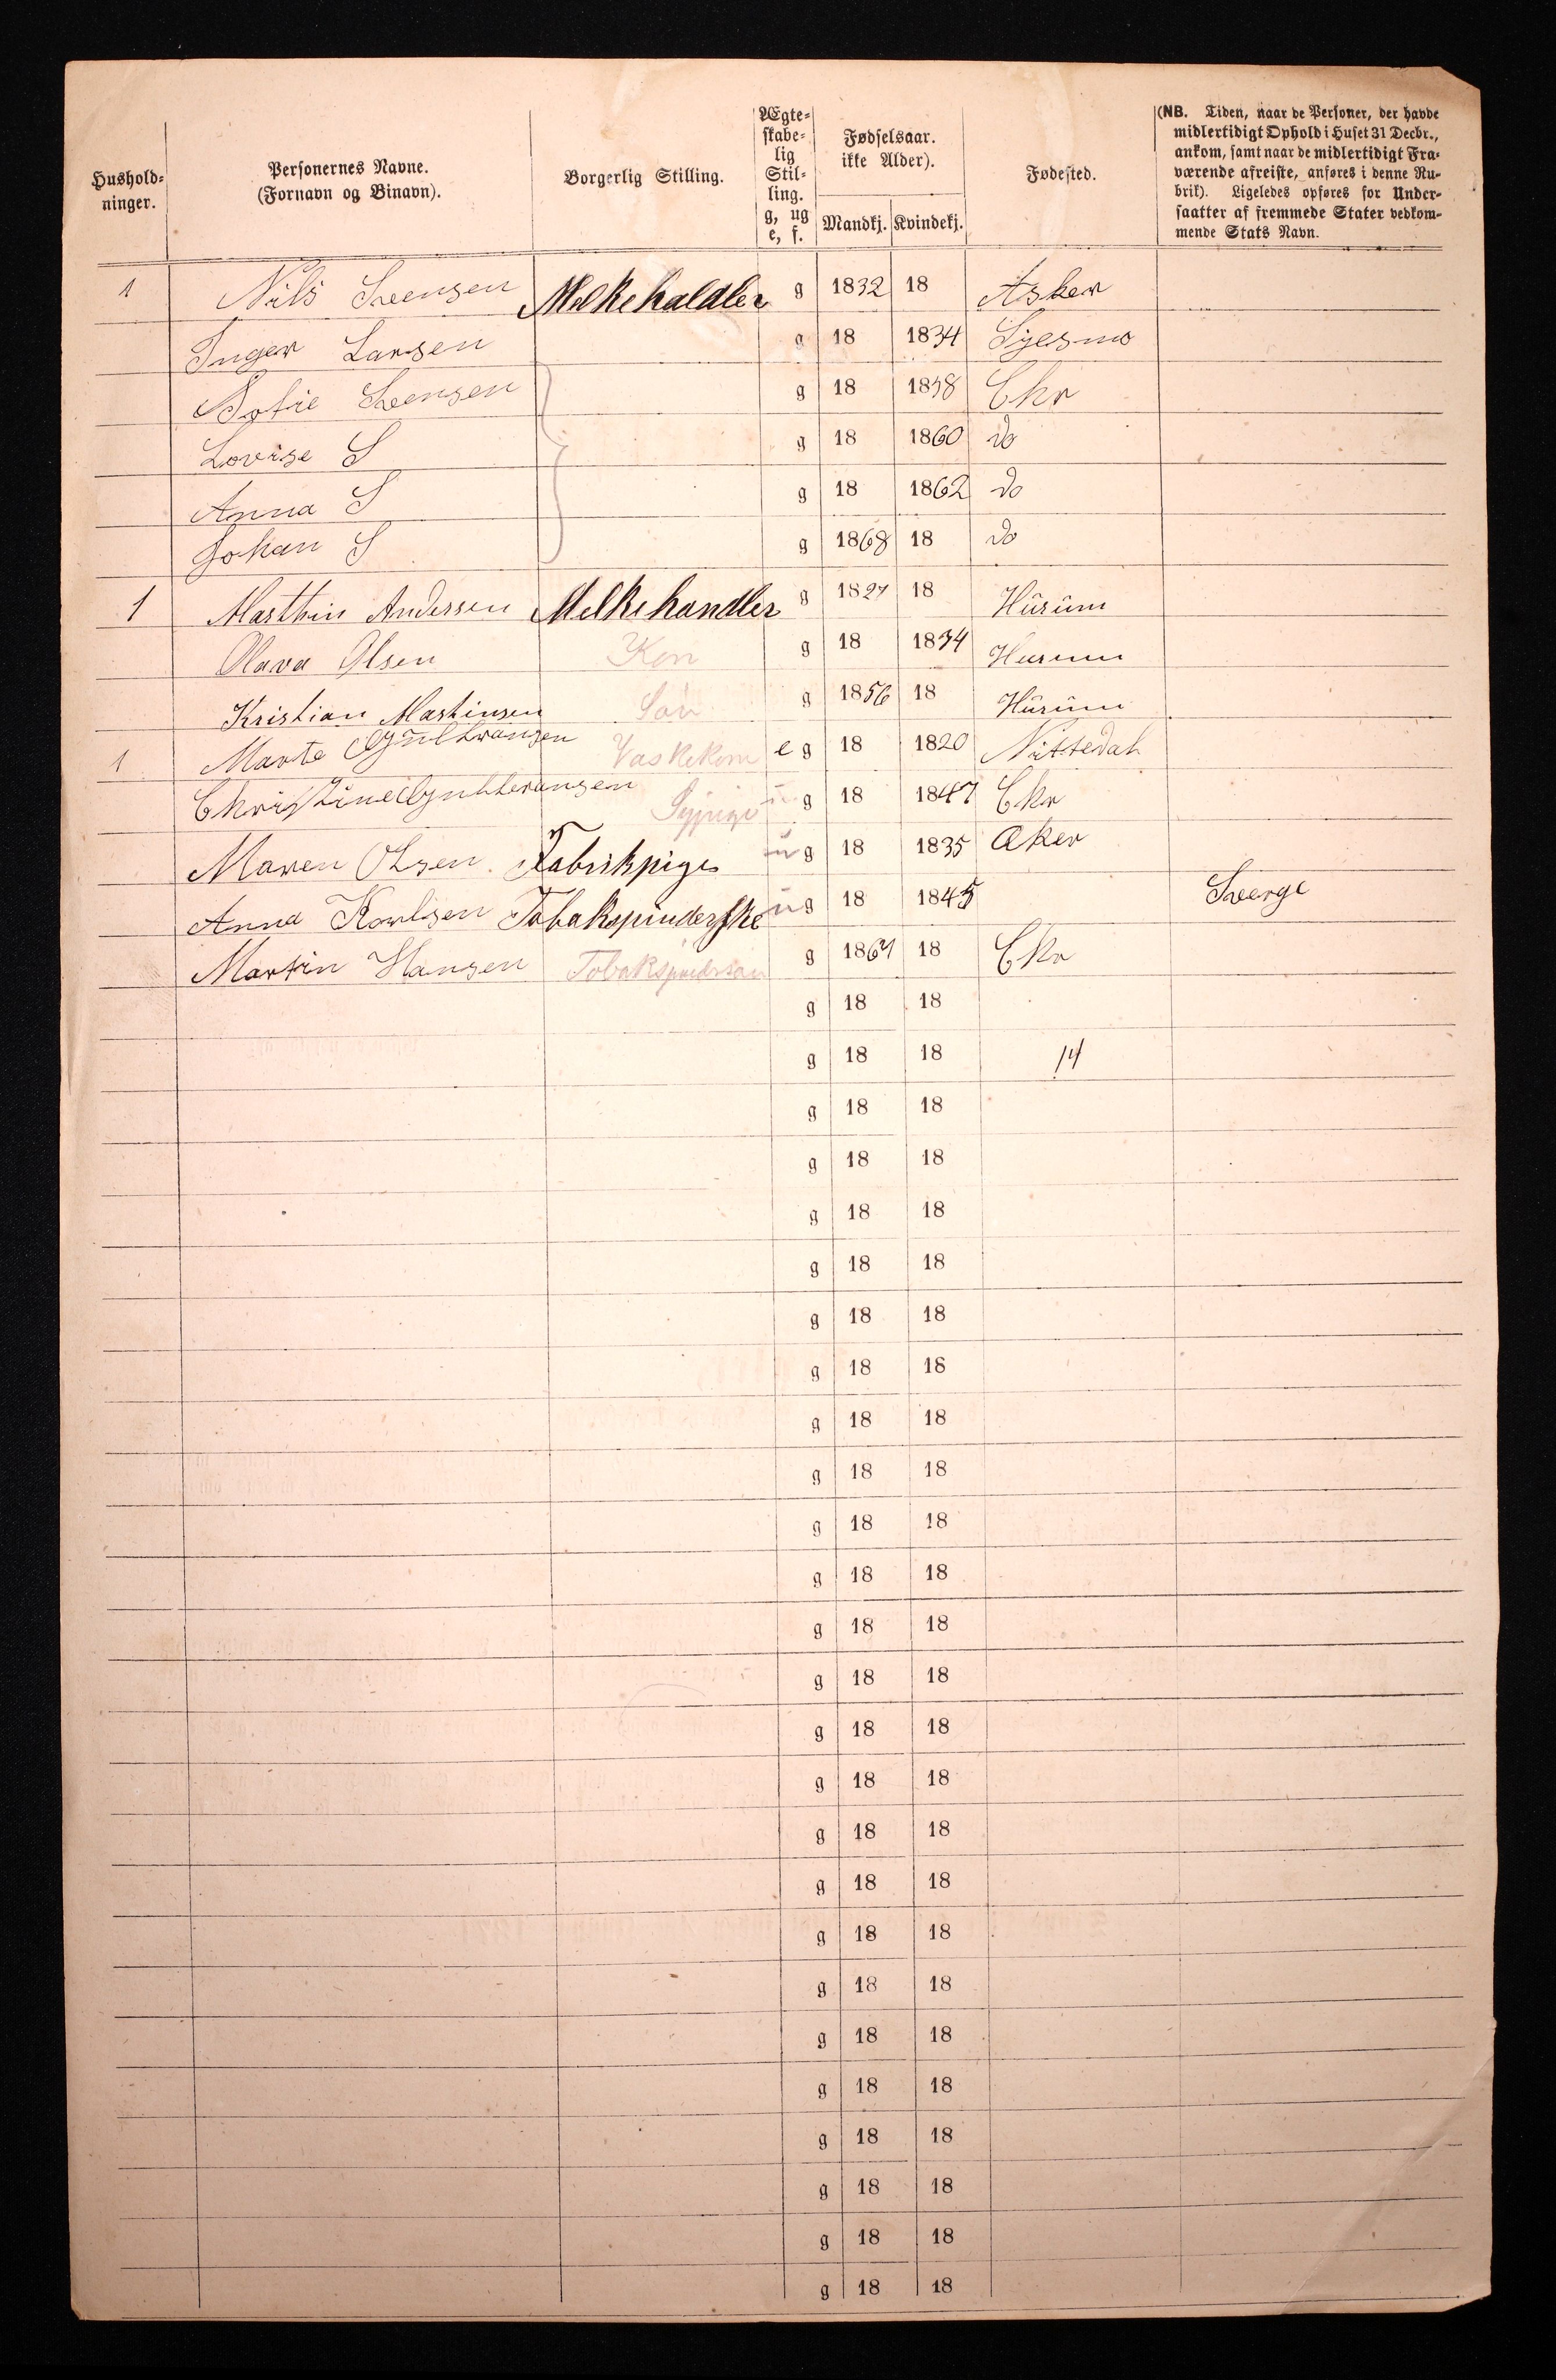 Hushold-
ninger.
Personernes Navne.
(Fornavn og Binavn).
Borgerlig Stilling.
Ægte-
skabe-
lig
Stil-
ling.
g, ug
e, f.
Fødselsaar.
ikke Alder).
Mandkj. Kvindekj.
Fødested.
(NB. Tiden, naar de Personer, der havde
midlertidigt Ophold i Huset 31 Decbr.,
ankom, samt naar de midlertidigt Fra-
værende afreiste, anføres i denne Ru-
brik). Ligeledes opføres for Under-
saatter af fremmede Stater vedkom-
mende Stats Navn.
1 Nils Svensen Melkehaldler g 1832 18 Asker
Inger Larsen g 18 1834
Sofie Svensen g 18 1858 Chr
Lovise S g 18 1860 do
Anna S g 18 1862 do
Johan S g 1868 18 do
1 Marthin Andersen Melkehandler g 1827 18 Hürüm
Olava Olsen Kon g 18 1834 Hurum
Kristian Martinsen Søn g 1856 18 Hürüm
1 Marte Gülbransen Vaskekone e g 18 1820 Nittedal
Christine Gulbransen Sypige ü g 18 1847 Chr
Maren Olsen Fabrikpige ü g 18 1835 Aker
Anna Karlsen Tobakspinderske ü g 18 1845 Sverge
Martin Hansen g 1867 18 Chr
g 18 18
g 18 18 14
g 18 18
g 18 18
g 18 18
g 18 18
g 18 18
g 18 18
g 18 18
g 18 18
g 18 18
g 18 18
g 18 18
g 18 18
g 18 18
g 18 18
g 18 18
g 18 18
g 18 18
g 18 18
g 18 18
g 18 18
g 18 18
g 18 18
g 18 18
g 18 18